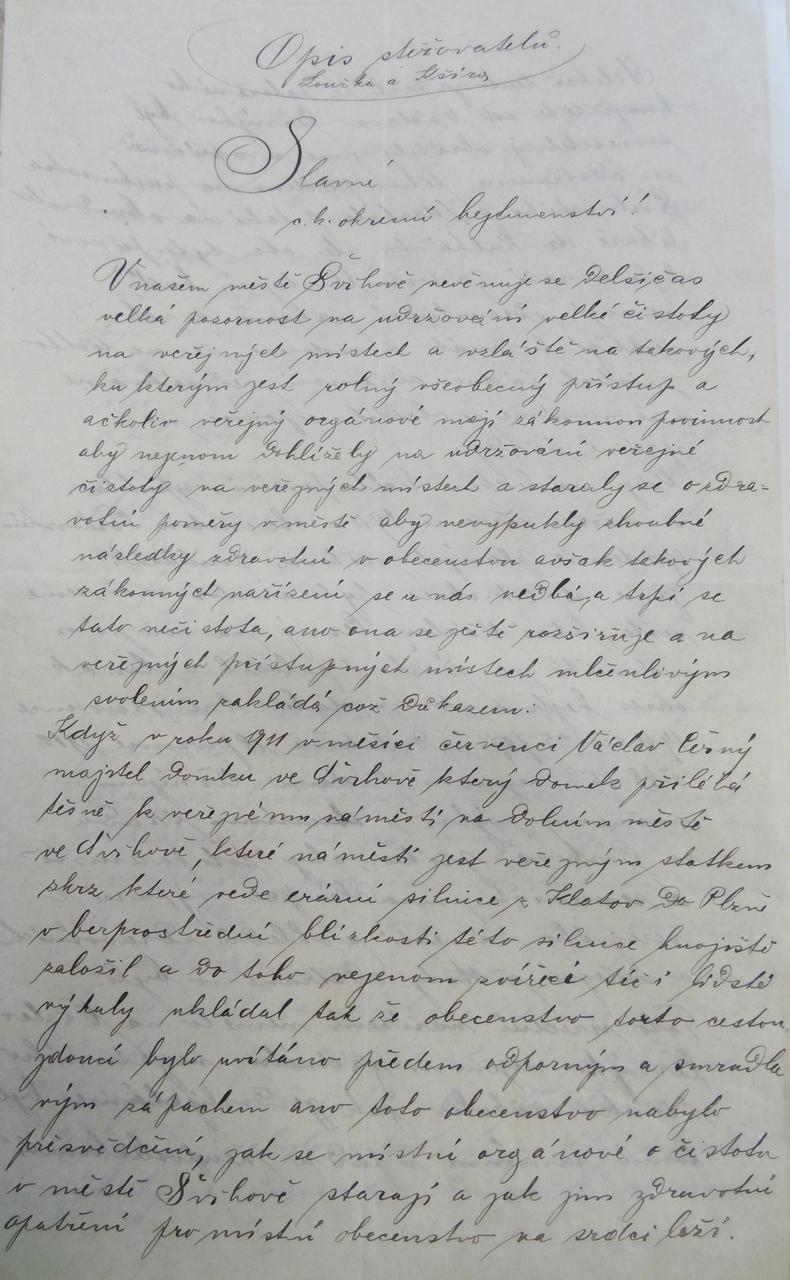 Opis stěžovatelů.
Loužka a Kšíra
Slavné
c. k. okresní hejtmanství!
V našem městě Švihově nevěnuje se delší čas
velká pozornost na udržování velké čistoty
na veřejných místech a vzláště na takových,
ku kterým jest volný všeobecný přístup a
ačkoliv veřejný orgánové mají zákonnou povinnost
aby nejenom dohlížely na udržování veřejné
čistoty na veřejných místech a staraly se o zdra=
votní poměry v městě aby nevypukly zhoubné
následky zdravotní v obecenstvu avšak takových
zákonných nařízení se u nás nedbá, a trpí se
tato nečistota, ano ona se ještě rozšiřuje a na
veřejných přístupných místech mlčenlivým
svolením zakládá což důkazem:
Když v roku 1911 v měsíci červenci Václav Černý
majitel domku ve Švihově který domek přiléhá
těsně k veřejnému náměstí na Dolním městě
ve Švihově, které náměstí jest veřejným statkem
skrz které vede erární silnice z Klatov do Plzně
v bezprostřední blízkosti této silnice hnojiště
založil a do toho nejenom zvířecí též i lidské
výkaly ukládal tak že obecenstvo touto cestou
jdoucí bylo uvítáno předem odporným a smradla
vým zápachem ano toto obecenstvo nabylo
přesvědčení, jak se místní orgánové o čistotu
v městě Švihově starají a jak jim zdravotní
opatření pro místní obecenstvo na srdci leží.